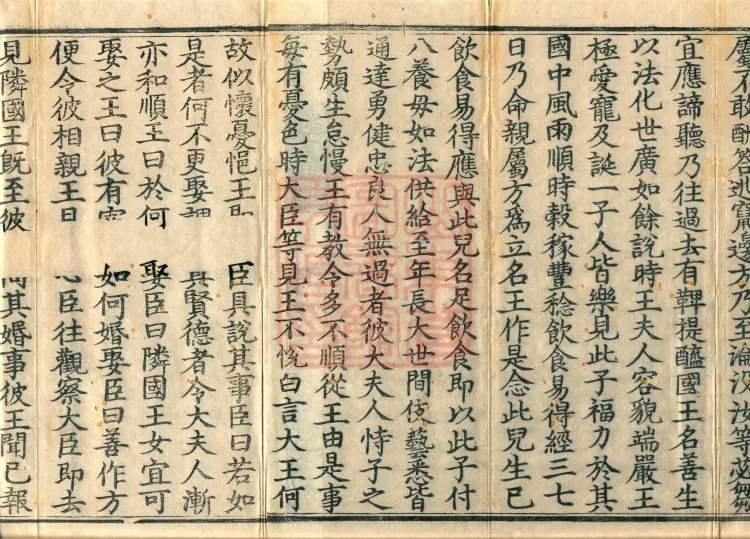 屬不敢酬答逃竄邊方乃至淪沒汝等苾芻
宜應諦聽乃往過去有鞞提醯國王名善生
以法化世廣如餘說時王夫人容貌端嚴王
極愛寵及誕一子人皆樂見此子福力於其
國中風雨順時穀稼豐稔飲食易得經三七
日乃命親屬方爲立名王作是念此兒生已
飲食易得應與此兒名足飲食即以此子付
八養毋如法供給至年長大世間伎藝悉皆
通達勇健忠良人無過者彼大夫人恃子之
勢頗生怠慢王有教令多不順從王由是事
每有憂色時大臣等見王不悅白言大王何
故似懷憂悒王 臣具說其事臣曰若如
是者何不更娶 具賢德者令大夫人漸
亦和順王曰於何 娶臣曰隣國王女宜可
娶之王曰彼有 如何婚娶臣曰善作方
便令彼相親王曰 臣往觀察大臣即去
見隣國王旣至彼 其婚事彼王聞已報